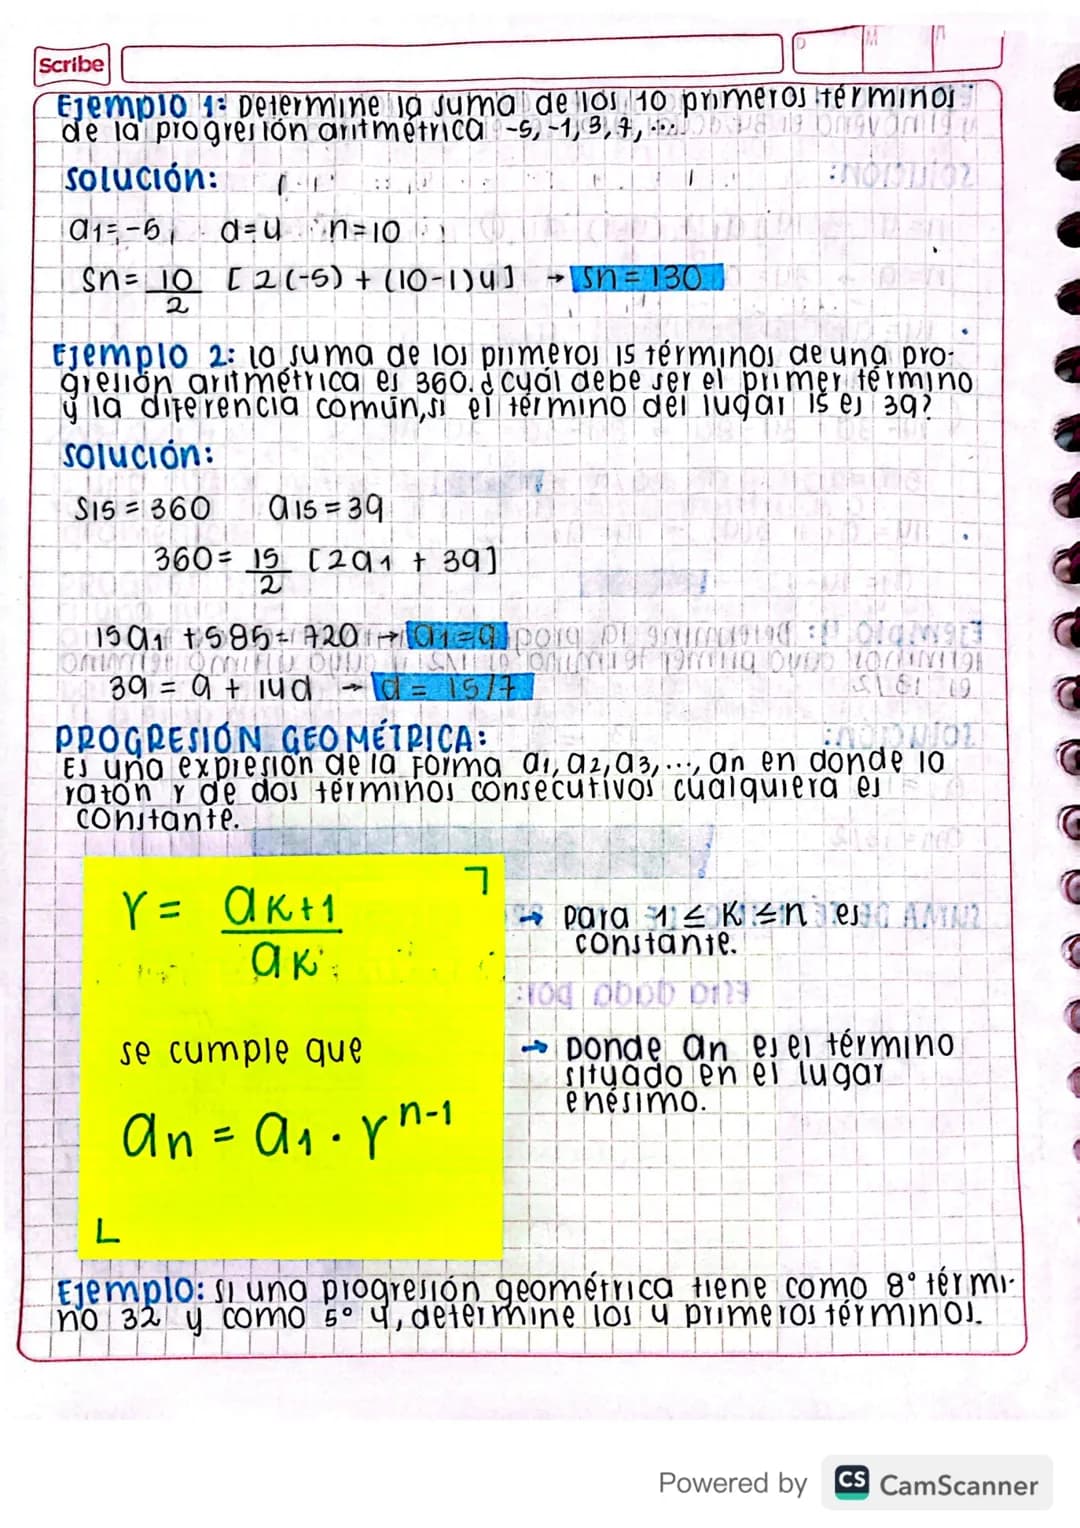 Scribe
D M A
Ejemplo 1: Determine la suma de los 10 primeros términos
de la progresión aritmétrica -5, -1, 3, 7, ...
solución:
a1=-5, d=4 n=10
Sn= 10/2 [2(-5) + (10-1)4] → Sn = 130
Ejemplo 2: la suma de los primeros 15 términos de una pro-
gresión aritmétrica es 360. ¿cuál debe ser el primer término
y la diferencia común, si el término del lugar 15 es 39?
solución:
S15 = 360 a15 = 39
360= 15/2 [2a1 + 39]
15a1 + 585 = 720 → a1 = 9
39 = 9 + 14d → d = 15/7
PROGRESIÓN GEOMÉTRICA:
Es una expresión de la forma a1, a2, a3, ..., an en donde la
ratón r de dos términos consecutivos cualquiera es
constante.
r = aK+1/aK
→ para 1 ≤ K ≤ n es
constante.
se cumple que
→ Donde an es el término
situado en el lugar
enésimo.
an = a1 · r^n-1
Ejemplo: si una progresión geométrica tiene como 8° térmi-
no 32 y como 5° 4, determine los 4 primeros términos.
Powered by CS CamScanner